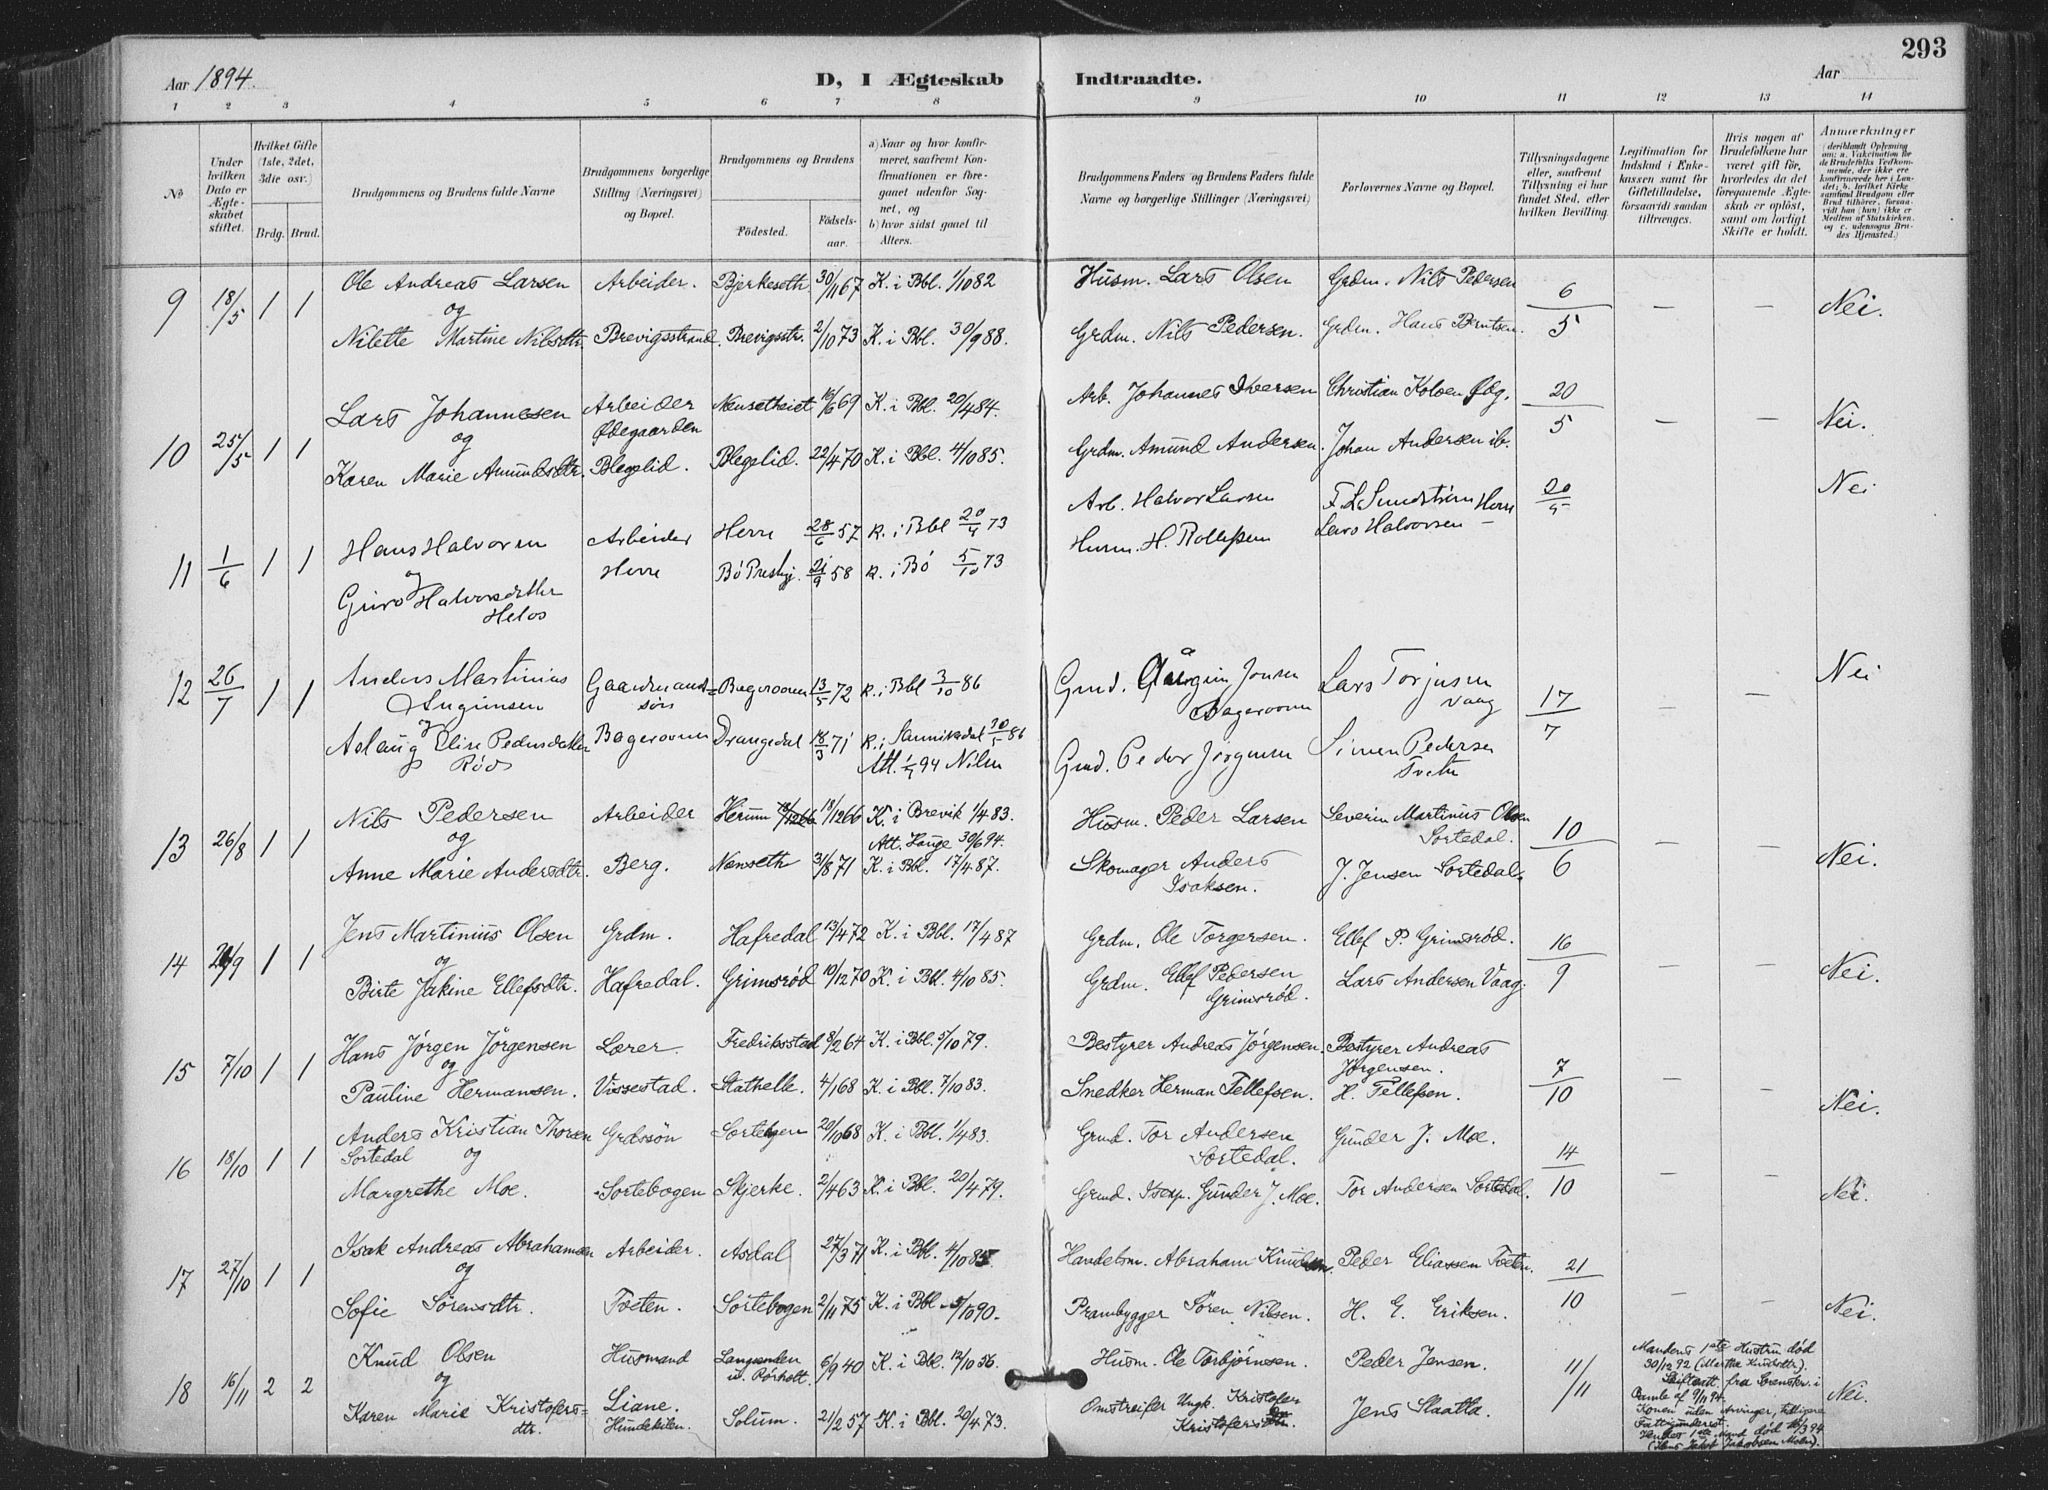 293
Aar 1894.
D, I Ægteskab Indtraadte.
Aar
1 2 3 4 5 6 7 8 9 10 11 12 13 14
No
Under hvilken Dato er Ægteskabet stiftet.
Hvilket Gifte (1ste, 2det, 3die osv.)
Brdg. Brud.
Brudgommens og Brudens fulde Navne
Brudgommens borgerlige Stilling (Næringsvei) og Bopæl.
Brudgommens og Brudens
Fødested.
Fødselsaar.
a) Naar og hvor konfirmeret, saafremt Konfirmationen er foregaaet udenfor Sognet, og
b) hvor sidst gaaet til Alters.
Brudgommens Faders og Brudens Faders fulde Navne og borgerlige Stillinger (Næringsvei)
Forlovernes Navne og Bopæl.
Tillysningsdagene eller, saafremt Tillysning ei har fundet Sted, efter hvilken Bevilling.
Legitimation for Indskud i Enkekassen samt for Giftetilladelse, forsaavidt saadan tiltrænges.
Hvis nogen af Brudefolkene har været gift før, hvorledes da det foregaaende Ægteskab er opløst, samt om lovligt Skifte er holdt.
Anmærkninger (deriblandt Oplysning om: a. Vakcination for de Brudefolks Vedkommende, der ikke ere konfirmerede her i Landet; b. hvilket Kirkesamfund Brudgom eller Brud tilhører, forsaavidt han (hun) ikke er Medlem af Statskirken, og c. udensogns Brudes Hjemsted.)
9 18/5 1 1 Ole Andreas Larsen Arbeider. Bjerkeseth 30/11 67 K. i Bbl. 1/10 82 Husm. Lars Olsen Grdm. Nils Pedersen 6/5 — — Nei.
og
Nilette Martine Nilsdtr. Brevigsstrand. Brevigsstr. 2/10 73 K. i Bbl. 30/9 88. Grdm. Nils Pedersen. Grdm. Hans Bentsen.
10 25/5 1 1 Lars Johannesen Arbeider Ødegaarden Nensetheiet 16/6 69 K. i Bbl. 20/4 84. Arb. Johannes Iversen Christian Kolsen Ødg. 20/5 — — Nei.
og
Karen Marie Amundsdtr. Blegelid. Blegelid. 22/4 70 K. i Bbl. 4/10 85. Grdm. Amund Andersen. Johan Andersen ib.
11 1/6 1 1 Hans Halvorsen Arbeider Herre 28/6 57 K. i Bbl 20/4 73 Arb. Halvor Larsen F. L. Sundstrøm Herre 20/5 Nei
og
Halvorsdtter Helos Herre Bø Prestgj. 21/9 58 K. i Bø 5/10 73 Husm. H. Rollefsen Lars Halvorsen —
12 26/7 1 1 Anders Martinius Gaardmandssøn Bagerovnen 13/5 72 K. i Bbl 3/10 86 Grmd. Jonsen Bagerovnen Lars Torjusen Vaag 17/7 — — Nei
og
Aslaug Elise Pedersdatter Røds Bagerovnen Drangedal 18/3 71 K. i Sannikedal 86
Att. 94 Nilsen Grmd. Peder Jørgensen Simen Pedersen Tveten
13 26/8 1 1 Nils Pedersen Arbeider Herum 18/12 66 K. i Brevik 1/4 83. Husm. Peder Larsen Severin Martinius Olsen Sortedal. 10/6 — — Nei.
og Att. Lange 30/6 94.
Anne Marie Andersdtr. Berg. Nenseth 31/8 71 K. i Bbl. 17/4 87. Skomager Anders Isaksen. J. Jensen Sortedal.
14 /9 1 1 Jens Martinius Olsen Grdm. Hafredal 13/4 72 K. i Bbl. 17/4 87 Grdm. Ole Torgersen. Ellef P. Grimsrød. 16/9 — — Nei.
og
Birte Jakine Ellefsdtr. Hafredal. Grimsrød 10/12 70 K. i Bbl. 4/10 85. Grdm. Ellef Pedersen Grimsrød. Lars Andersen Vaag.
15 7/10 1 1 Hans Jørgen Jørgensen Lærer. Fredriksstad 8/2 64 K. i Bbl. 5/10 79. Bestyrer Andreas Jørgensen. Bestyrer Andreas Jørgensen. 7/10 — — Nei.
og
Pauline Hermansen. Vissestad. Stathelle. 4/1 68 K. i Bbl. 7/10 83. Snedker Herman Tellefsen. H. Tellefsen.
16 18/10 1 1 Anders Kristian Thorsen Sortedal Grdssøn Sortebogen 20/10 68 K. i Bbl. 1/4 83. Grmd. Tor Andersen Sortedal. Gunder J. Moe. 14/10 — — Nei.
og
Margrethe Moe. Sortebogen Skjerke. 2/4 63 K. i Bbl. 20/4 79. Grmd. Gunder J. Moe. Tor Andersen Sortedal.
17 27/10 1 1 Isak Andreas Abrahamsen Arbeider. Asdal 27/3 71 K. i Bbl. 4/10 85. Handelsm. Abraham Knudsen. Peder Eliassen Tveten. 21/10 — — Nei.
og
Sofie Sørensdtr. Tveten. Sortebogen 2/11 75 K. i Bbl. 5/10 90. Prambygger Søren Nilsen. H. E. Eriksen.
18 16/11 2 2 Knud Olsen Husmand Langenden u. Rørholt. 6/9 40 K. i Bbl. 12/10 56. Husm. Ole Torbjørnsen. Peder Jensen. 11/11 Nei.
og
Karen Marie Kristofersdtr. Liane. Hundekilen. Solum. 21/2 57 K. i Bbl. 20/4 73. Omstreifer Ungk. Kristofer Kristofersen. Jens Slaatta.
Mandens 1ste Hustru død 30/12 92 (Martha Knudsdtr). Skifteatt. fra Sorenskr. i Bamle af 9/11 94. Konen uden Arvinger, tidligere Fattigunderst. Hendes 1ste Mand død 10/3 94 (Hans Jakob Jakobsen Moen).